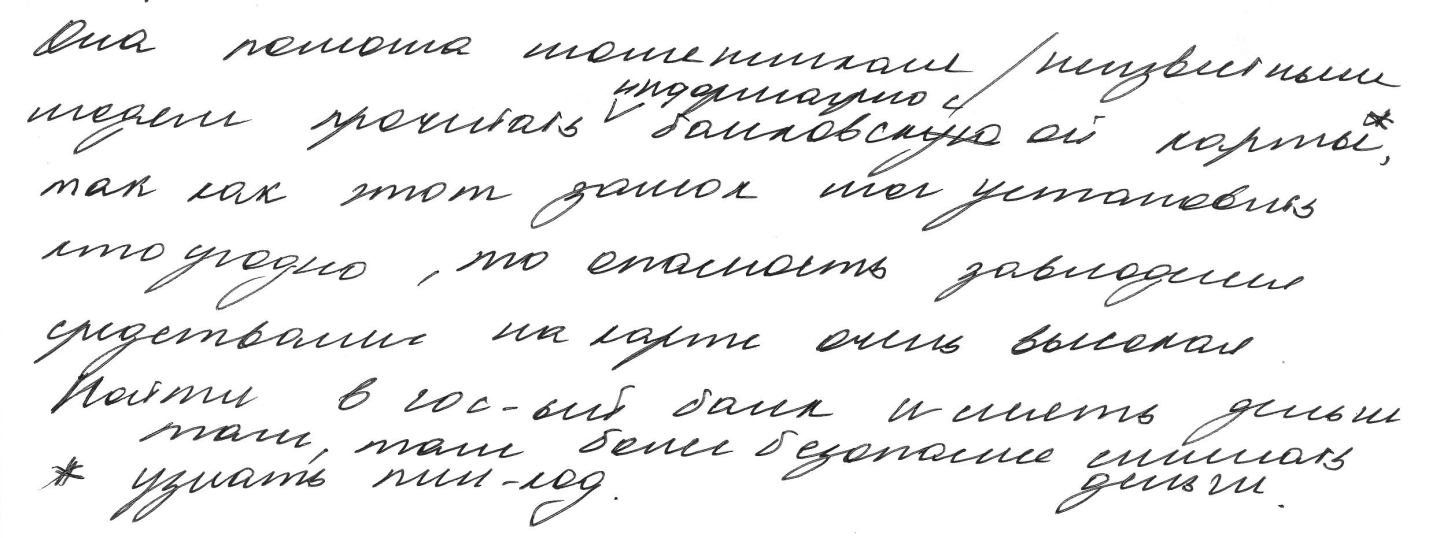 Она помогла мошенникам / неизвестным
людям прочитать информацию с банковской карты*,
так как этот замок мог установить
кто угодно, то опасность завладения
средствами на карте очень высокая
Пойти в гос-ый банк и снять деньги
там, там более безопасно снимать деньги.
* узнать пин-код.